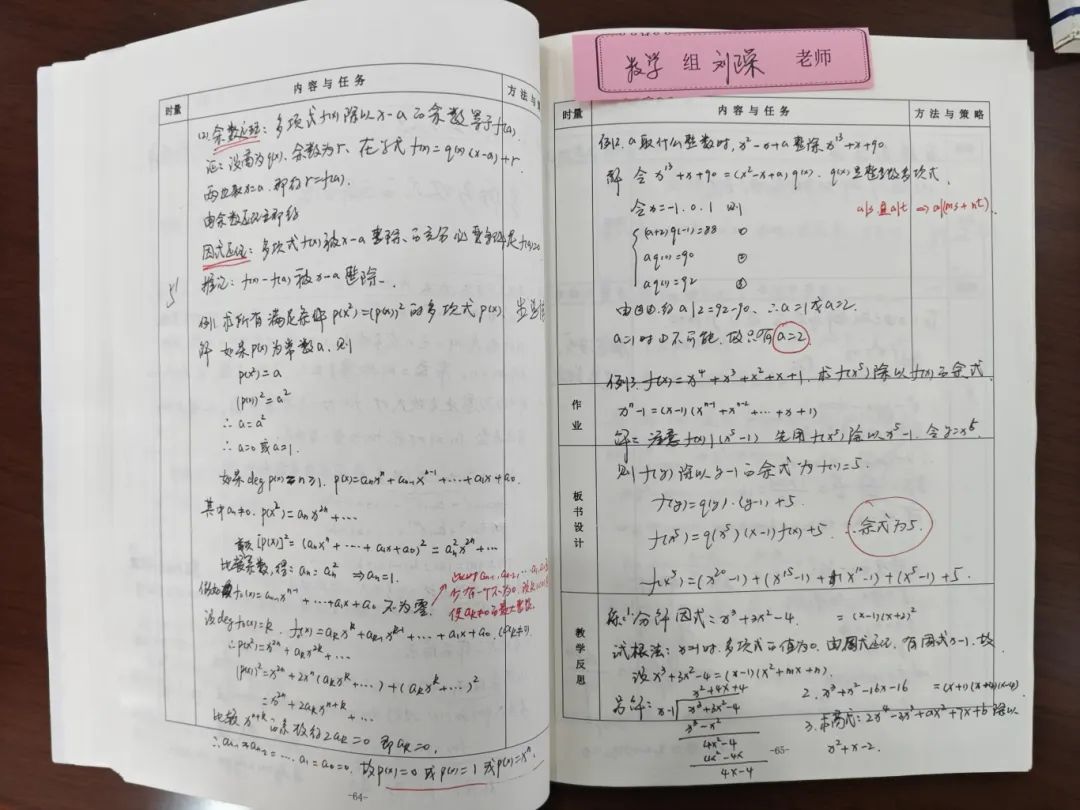 时量 内容与任务 方法与
(2). 余数定理：多项式f(x)除以x-a的余数等于f(a).
证：设商为q(x)、余数为r、在等式 f(x)=q(x)(x-a)+r
两边取x=a. 即得r=f(a).
由余数定理立即得
因式定理：多项式f(x)被x-a整除的充分必要条件是f(a)=0
推论：f(x)-f(a)被x-a整除.
例1. 求所有满足条件 p(x²)=(p(x))² 的多项式p(x).
解 如果p(x)为常数a, 则
p(x²)=a
(p(x))²=a²
∴ a=a²
∴ a=0或a=1.
如果deg p(x)=n≥1. p(x)=aₙxⁿ+aₙ₋₁xⁿ⁻¹+…+a₁x+a₀.
其中aₙ≠0. p(x²)=aₙx²ⁿ+…
[p(x)]²=(aₙxⁿ+…+a₁x+a₀)²=aₙ²x²ⁿ+…
比较系数, 得: aₙ=aₙ² ⇒aₙ=1.
f₁(x)=aₙ₋₁xⁿ⁻¹+…+a₁x+a₀ 不为零
设deg f₁(x)=k. f₁(x)=aₖxᵏ+aₖ₋₁xᵏ⁻¹+…+a₁x+a₀ (aₖ≠0).
∴p(x²)=x²ⁿ+aₖx²ᵏ+…
(p(x))²=x²ⁿ+2xⁿ(aₖxᵏ+…)+(aₖxᵏ+…)²
=x²ⁿ+2aₖxⁿ⁺ᵏ+…
比较xⁿ⁺ᵏ的系数得2aₖ=0 即aₖ=0,
∴aₙ₋₁=aₙ₋₂=…a₁=a₀=0. 故p(x)=0或p(x)=1或p(x)=xⁿ.
-64-
数学 组 刘 老师
时量 内容与任务 方法与策略
例2. a取什么整数时, x²-x+a整除x¹³+x+90.
解 令x¹³+x+90=(x²-x+a)q(x). q(x)是整系数多项式.
令x=-1.0.1 则
a|s且a|t ⇒a|(ms+nt).
(a+2)q(-1)=88 ①
aq(0)=90 ②
aq(1)=92 ③
由②③得a|2=92-90. ∴a=1或a=2.
a=1时①不可能. 故只有a=2.
例3. f(x)=x⁴+x³+x²+x+1. 求f(x⁵)除以f(x)的余式.
作业
xⁿ-1=(x-1)(xⁿ⁻¹+xⁿ⁻²+…+x+1)
解: 注意f(x)|(x⁵-1) 先用f(x⁵)除以x⁵-1. 令y=x⁵.
则f(y)除以y-1的余式为f(1)=5.
板书设计
f(y)=q(y)·(y-1)+5
f(x⁵)=q(x⁵)(x-1)f(x)+5 ∴余式为5.
f(x⁵)=(x²⁰-1)+(x¹⁵-1)+(x¹⁰-1)+(x⁵-1)+5.
教学反思
1. 分解因式: x³+3x²-4. =(x-1)(x+2)²
试根法: x=1时. 多项式的值为0. 由因式定理. 有因式x-1. 故
设x³+3x²-4=(x-1)(x²+mx+n).
x²+4x+4
x-1 x³+3x²-4
x³-x²
4x²-4
4x²-4x
4x-4
2. x³+x²-16x-16 =(x+1)(x+4)(x-4)
3. 求商式: 2x⁴-3x³+ax²+7x+b除以
x²+x-2.
-65-